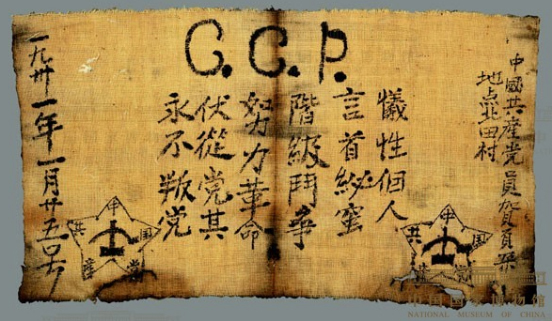 C.C.P.
中國共産党員賀頁朶
地点北田村
犠性個人
言首秘蜜
階級鬥爭
努力革命
伏從党其
永不叛党
一九卅一年一月廿五号
中国共産党
中国共産党
中国国家博物馆
NATIONAL MUSEUM OF CHINA